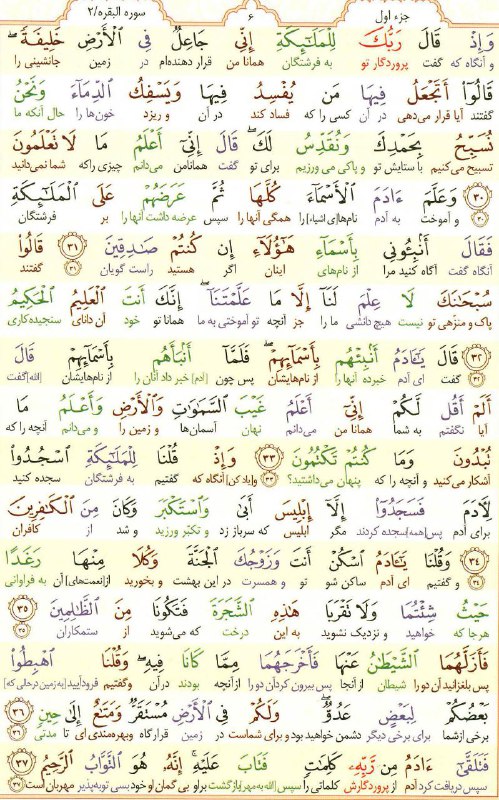 جزء اول ۶ سوره البقره/۲
وَإِذْ قَالَ رَبُّكَ لِلْمَلَٰٓئِكَةِ إِنِّي جَاعِلٌ فِي ٱلْأَرْضِ خَلِيفَةً ۖ
و آنگاه که گفت پروردگار تو به فرشتگان همانا من قرار دهنده‌ام در زمین جانشینی را
قَالُوٓا۟ أَتَجْعَلُ فِيهَا مَن يُفْسِدُ فِيهَا وَيَسْفِكُ ٱلدِّمَآءَ وَنَحْنُ
گفتند آیا قرار می‌دهی در آن کسی را که فساد کند در آن و ریزد خون‌ها را حال آنکه ما
نُسَبِّحُ بِحَمْدِكَ وَنُقَدِّسُ لَكَ ۖ قَالَ إِنِّيٓ أَعْلَمُ مَا لَا تَعْلَمُونَ
تسبیح می‌کنیم با ستایش تو و پاکی می ورزیم برای تو گفت همانامن می‌دانم چیزی راکه شما نمی‌دانید
۳۰ وَعَلَّمَ ءَادَمَ ٱلْأَسْمَآءَ كُلَّهَا ثُمَّ عَرَضَهُمْ عَلَى ٱلْمَلَٰٓئِكَةِ
۳۰ و آموخت به آدم نام‌ها[ی اشیاء] را همگی آنها را سپس عرضه داشت آنها را بر فرشتگان
فَقَالَ أَنۢبِـُٔونِي بِأَسْمَآءِ هَٰٓؤُلَآءِ إِن كُنتُمْ صَٰدِقِينَ ۳۱ قَالُوا۟
آنگاه گفت آگاه کنید مرا از نام‌های اینان اگر هستید راست گویان ۳۱ گفتند
سُبْحَٰنَكَ لَا عِلْمَ لَنَآ إِلَّا مَا عَلَّمْتَنَآ ۖ إِنَّكَ أَنتَ ٱلْعَلِيمُ ٱلْحَكِيمُ
پاک و منزّهی تو نیست هیچ دانشی ما را جز آنچه تو آموختی به ما همانا تو خود آن دانای سنجیده‌کاری
۳۲ قَالَ يَٰٓـَٔادَمُ أَنۢبِئْهُم بِأَسْمَآئِهِمْ ۖ فَلَمَّآ أَنۢبَأَهُم بِأَسْمَآئِهِمْ قَالَ
۳۲ گفت ای آدم خبرده آنها را از نام‌هایشان پس چون [آدم] خبر داد آنان را از نام‌هایشان [الله] گفت
أَلَمْ أَقُل لَّكُمْ إِنِّيٓ أَعْلَمُ غَيْبَ ٱلسَّمَٰوَٰتِ وَٱلْأَرْضِ وَأَعْلَمُ مَا
آیا نگفتم به شما همانا من می‌دانم نهان آسمان‌ها و زمین را و می‌دانم آنچه را که
تُبْدُونَ وَمَا كُنتُمْ تَكْتُمُونَ ۳۳ وَإِذْ قُلْنَا لِلْمَلَٰٓئِكَةِ ٱسْجُدُوا۟
آشکار می‌کنید و آنچه را که پنهان می‌داشتید؟ ۳۳ و [یاد کن] آنگاه که گفتیم به فرشتگان سجده کنید
لِـَٔادَمَ فَسَجَدُوٓا۟ إِلَّآ إِبْلِيسَ أَبَىٰ وَٱسْتَكْبَرَ وَكَانَ مِنَ ٱلْكَٰفِرِينَ
برای آدم پس [همه] سجده کردند مگر ابلیس که سرباز زد و تکبّر ورزید و شد از کافران
۳۴ وَقُلْنَا يَٰٓـَٔادَمُ ٱسْكُنْ أَنتَ وَزَوْجُكَ ٱلْجَنَّةَ وَكُلَا مِنْهَا رَغَدًا
۳۴ و گفتیم ای آدم ساکن شو تو و همسرت در این بهشت و بخورید از [نعمت‌های] آن به فراوانی
حَيْثُ شِئْتُمَا وَلَا تَقْرَبَا هَٰذِهِ ٱلشَّجَرَةَ فَتَكُونَا مِنَ ٱلظَّٰلِمِينَ ۳۵
هرجا که خواهید و نزدیک نشوید به این درخت که می‌شوید از ستمکاران ۳۵
فَأَزَلَّهُمَا ٱلشَّيْطَٰنُ عَنْهَا فَأَخْرَجَهُمَا مِمَّا كَانَا فِيهِ ۖ وَقُلْنَا ٱهْبِطُوا۟
پس بلغزانید آن دو را شیطان از آنجا پس بیرون کردآن دو را از آنچه بودند در آن و گفتیم فرودآیید [به زمین درحالی که]
بَعْضُكُمْ لِبَعْضٍ عَدُوٌّ ۖ وَلَكُمْ فِي ٱلْأَرْضِ مُسْتَقَرٌّ وَمَتَٰعٌ إِلَىٰ حِينٍ ۳۶
برخی ازشما برای برخی دیگر دشمن خواهید بود و برای شماست در زمین قرارگاه وبهره‌مندی ای تا مدتی ۳۶
فَتَلَقَّىٰٓ ءَادَمُ مِن رَّبِّهِۦ كَلِمَٰتٍ فَتَابَ عَلَيْهِ ۚ إِنَّهُۥ هُوَ ٱلتَّوَّابُ ٱلرَّحِيمُ ۳۷
سپس دریافت کرد آدم از پروردگارش کلماتی را سپس [الله به مهر] بازگشت براو بی گمان او خود بسی توبه‌پذیر مهربان است ۳۷